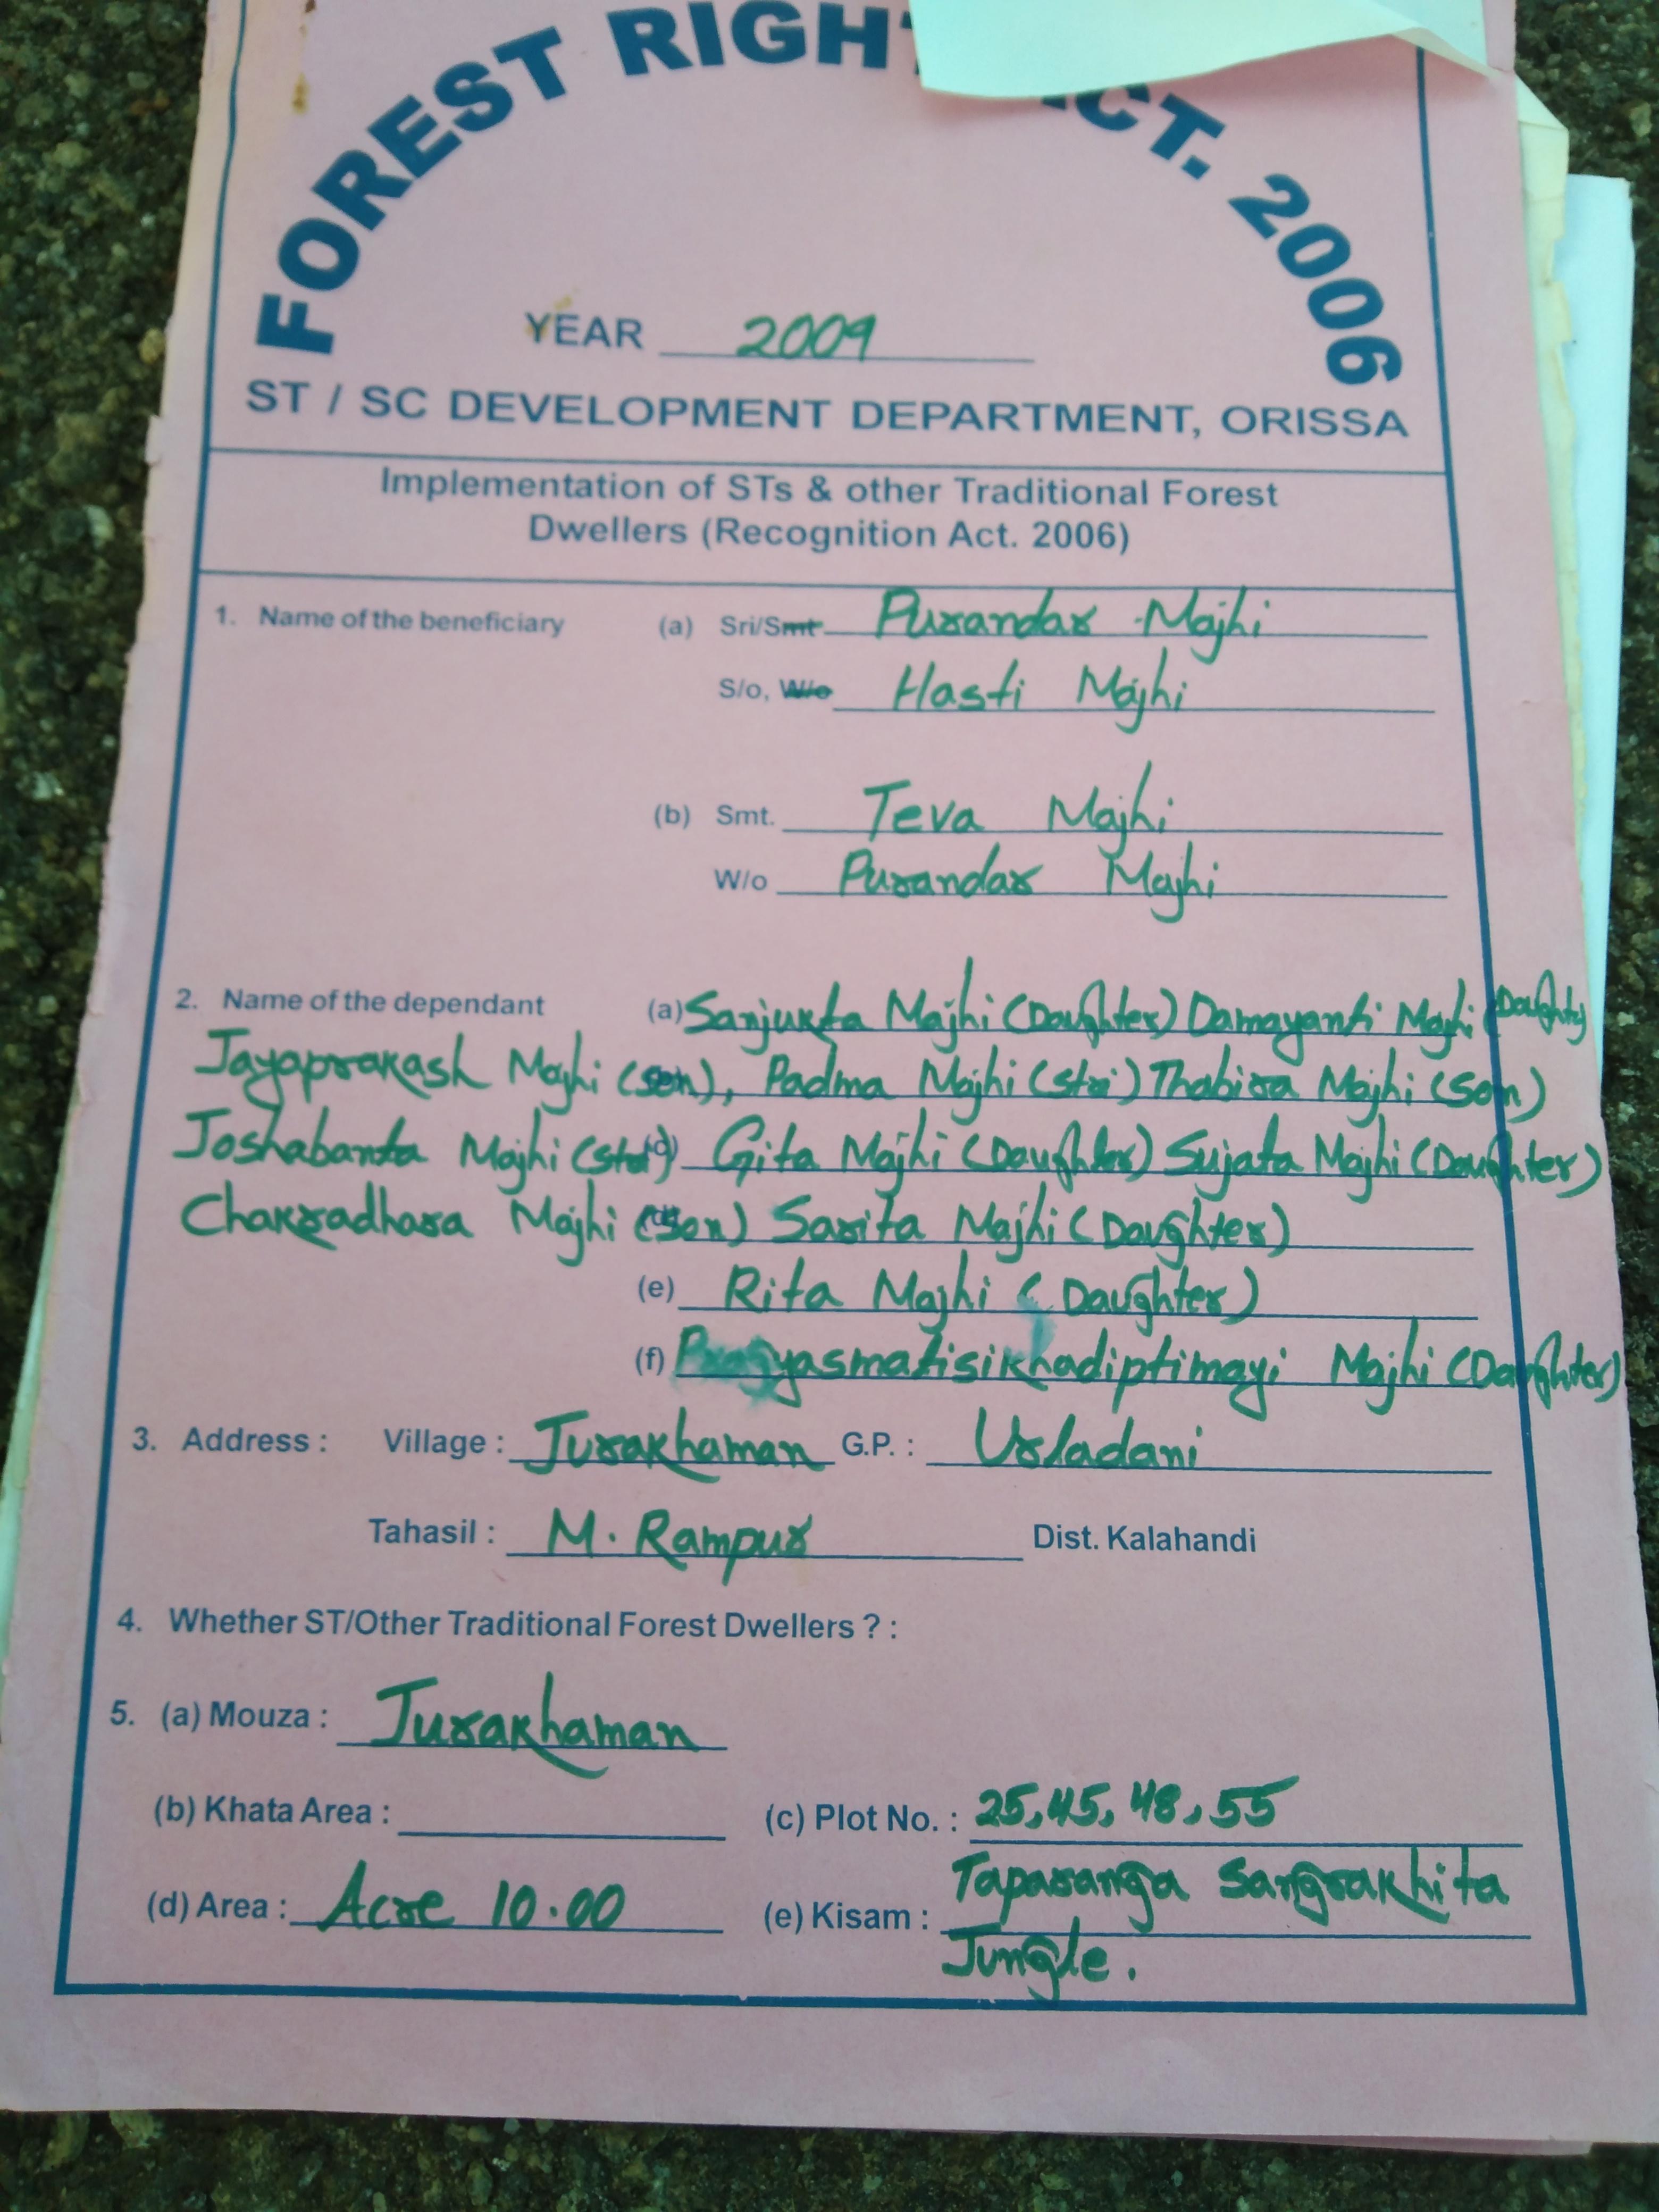 FOREST RIGH CT. 2006
YEAR 2009
ST / SC DEVELOPMENT DEPARTMENT, ORISSA
Implementation of STs & other Traditional Forest
Dwellers (Recognition Act. 2006)
1. Name of the beneficiary (a) Sri/Smt Purandar Majhi
S/o, W/o Hasti Majhi
(b) Smt. Teva Majhi
W/o Purandar Majhi
2. Name of the dependant (a) Sanjukta Majhi (Daughter) Damayanti Majhi (Daughty
Jayaprakash Majhi (son), Padma Majhi (stri) Thabira Majhi (Son)
Joshabanta Majhi (c) Gita Majhi (Daughter) Sujata Majhi (Daughter)
Chakradhara Majhi (Son) Sarita Majhi (Daughter)
(e) Rita Majhi (Daughter)
(f) Majhi (Daughter)
3. Address : Village : Jurakhaman G.P. : Urladani
Tahasil : M. Rampur Dist. Kalahandi
4. Whether ST/Other Traditional Forest Dwellers ? :
5. (a) Mouza : Jurakhaman
(b) Khata Area : (c) Plot No. : 25, 45, 48, 55
(d) Area : Acre 10.00 (e) Kisam : Taparanga Sangrakhita
Jungle.